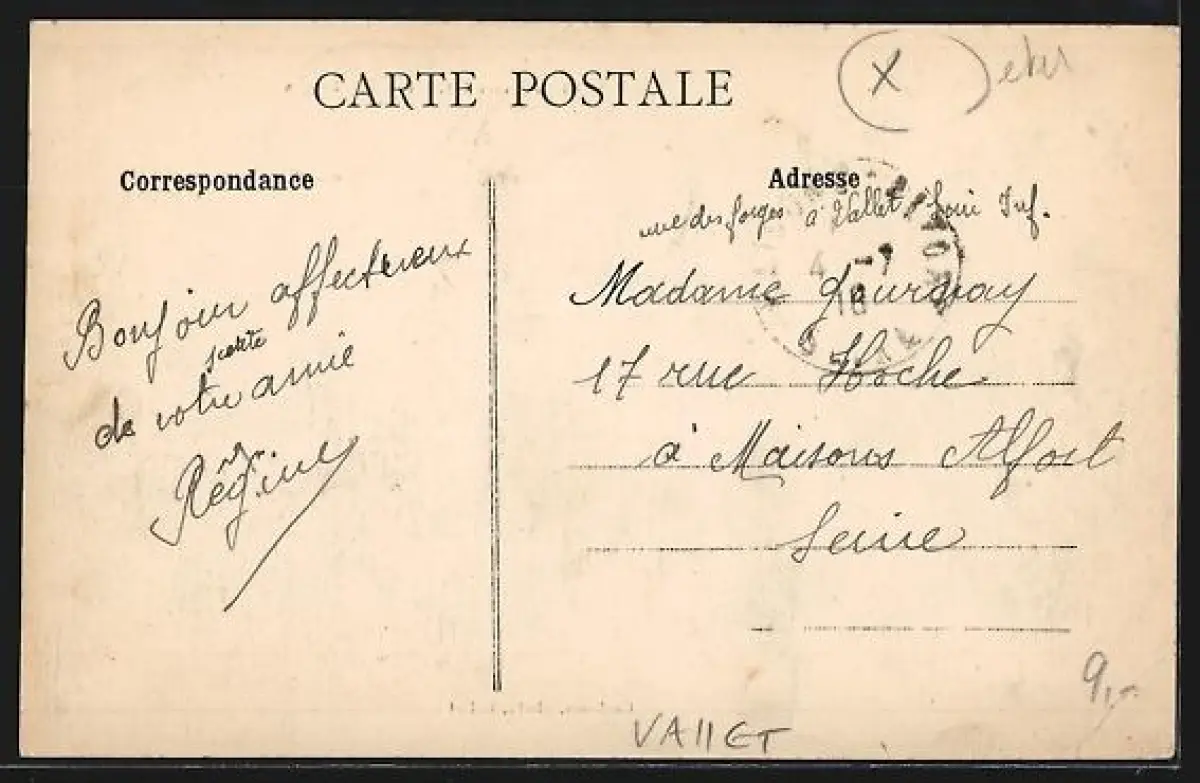 CARTE POSTALE
X
Correspondance
Adresse
rue des forges à Vallet Loire Inf.
Bonjour affectueux
de votre petite amie
Régine
Madame Gournay
17 rue Hoche
à Maisons Alfort
Seine
VALLET